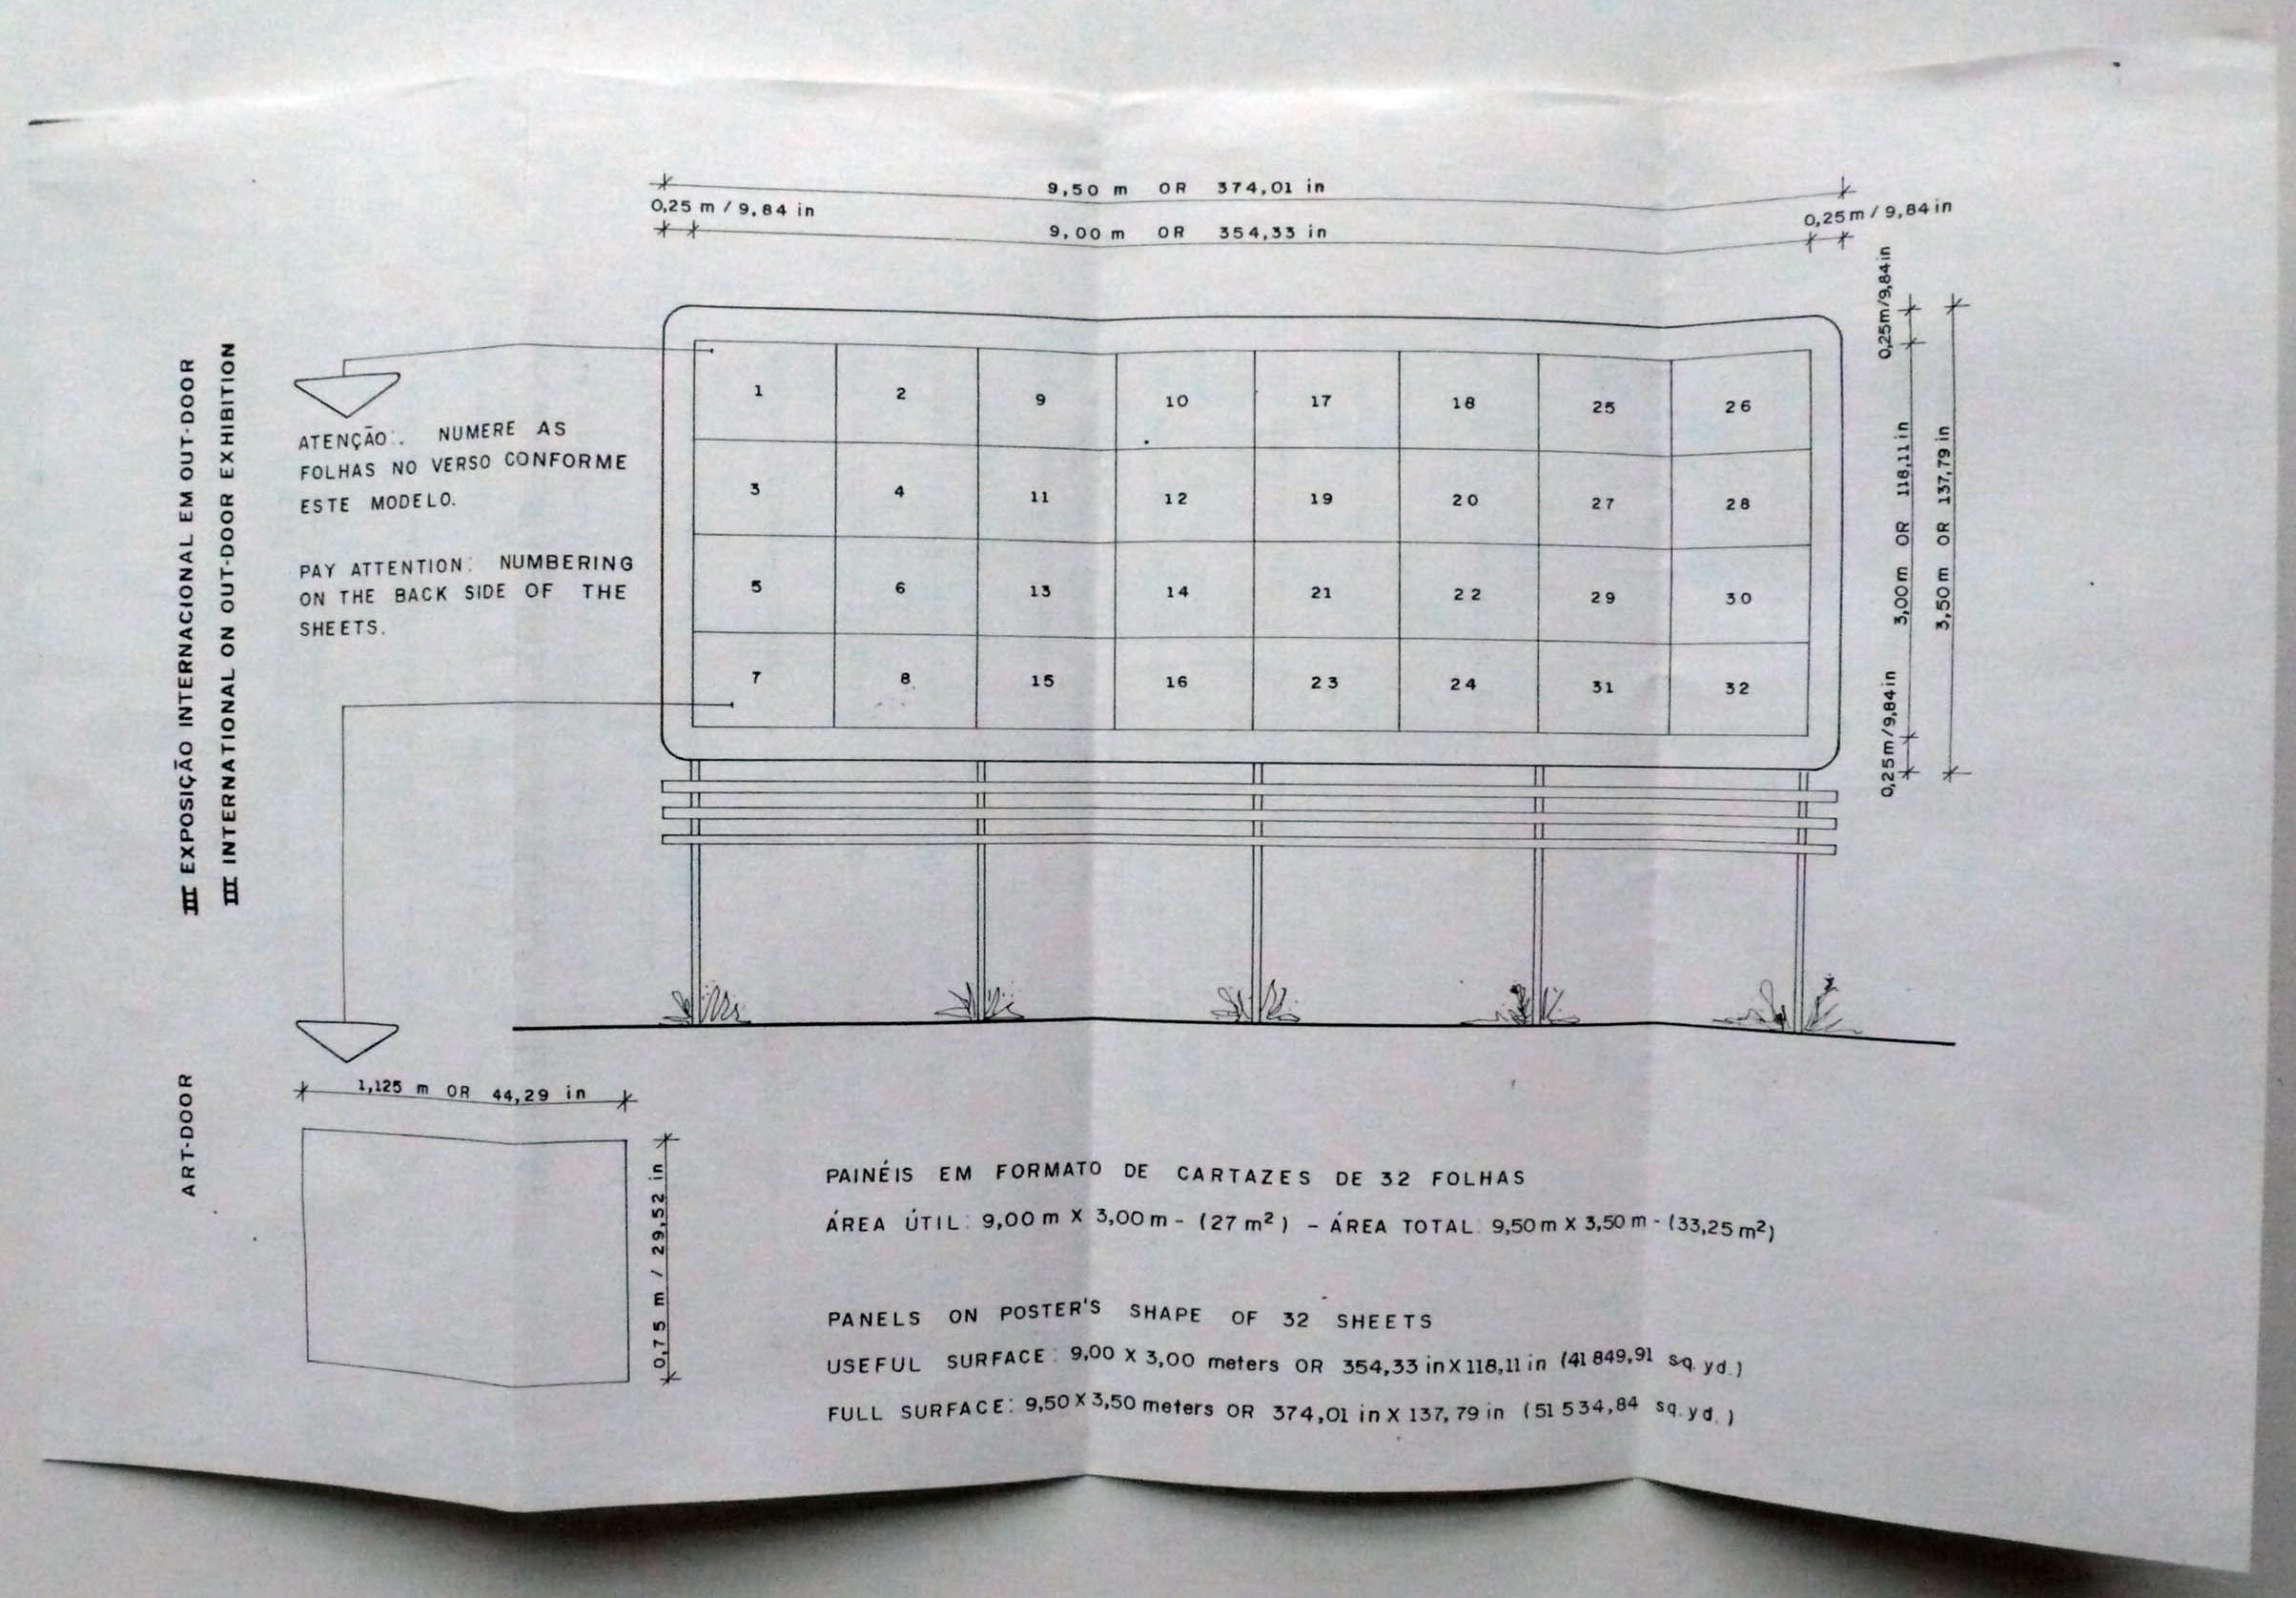 III EXPOSIÇÃO INTERNACIONAL EM OUT-DOOR
III INTERNATIONAL ON OUT-DOOR EXHIBITION
ART-DOOR
9,50 m OR 374,01 in
0,25 m / 9,84 in
9,00 m OR 354,33 in
0,25 m / 9,84 in
0,25m/9,84in
3,00m OR 118,11 in
3,50 m OR 137,79 in
0,25m/9,84in
ATENÇÃO: NUMERE AS
FOLHAS NO VERSO CONFORME
ESTE MODELO.
PAY ATTENTION: NUMBERING
ON THE BACK SIDE OF THE
SHEETS.
1 2 9 10 17 18 25 26
3 4 11 12 19 20 27 28
5 6 13 14 21 22 29 30
7 8 15 16 23 24 31 32
1,125 m OR 44,29 in
0,75 m / 29,52 in
PAINÉIS EM FORMATO DE CARTAZES DE 32 FOLHAS
ÁREA ÚTIL: 9,00 m X 3,00 m - (27 m²) - ÁREA TOTAL: 9,50 m X 3,50 m - (33,25 m²)
PANELS ON POSTER'S SHAPE OF 32 SHEETS
USEFUL SURFACE: 9,00 X 3,00 meters OR 354,33 in X 118,11 in (41 849,91 sq. yd.)
FULL SURFACE: 9,50 X 3,50 meters OR 374,01 in X 137,79 in (51 534,84 sq. yd.)